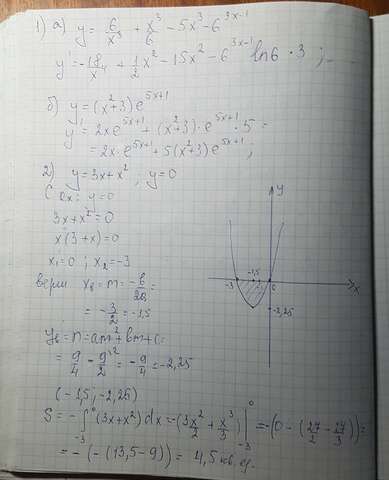 1) а) y = 6/x³ + x³/6 - 5x³ - 6^(3x-1)
y' = -18/x⁴ + 1/2 x² - 15x² - 6^(3x-1) ln6 · 3 ;
б) y = (x²+3)e^(5x+1)
y' = 2xe^(5x+1) + (x²+3)·e^(5x+1)·5 =
= 2x·e^(5x+1) + 5(x²+3)e^(5x+1) ;
2) y = 3x + x² , y = 0
С ox: y = 0
3x + x² = 0
x(3+x) = 0
x₁ = 0 ; x₂ = -3
верш x₈ = m = -b/2a =
= -3/2 = -1,5
y₈ = n = am² + bm + c =
= 9/4 - 9/2 = -9/4 = -2,25
(-1,5 ; -2,25)
S = - ∫₋₃⁰ (3x+x²) dx = -(3x²/2 + x³/3) |₋₃⁰ = -(0 - (27/2 - 27/3)) =
= -(-(13,5-9)) = 4,5 кв. ед.
y
-3
-1,5
0
x
-2,25